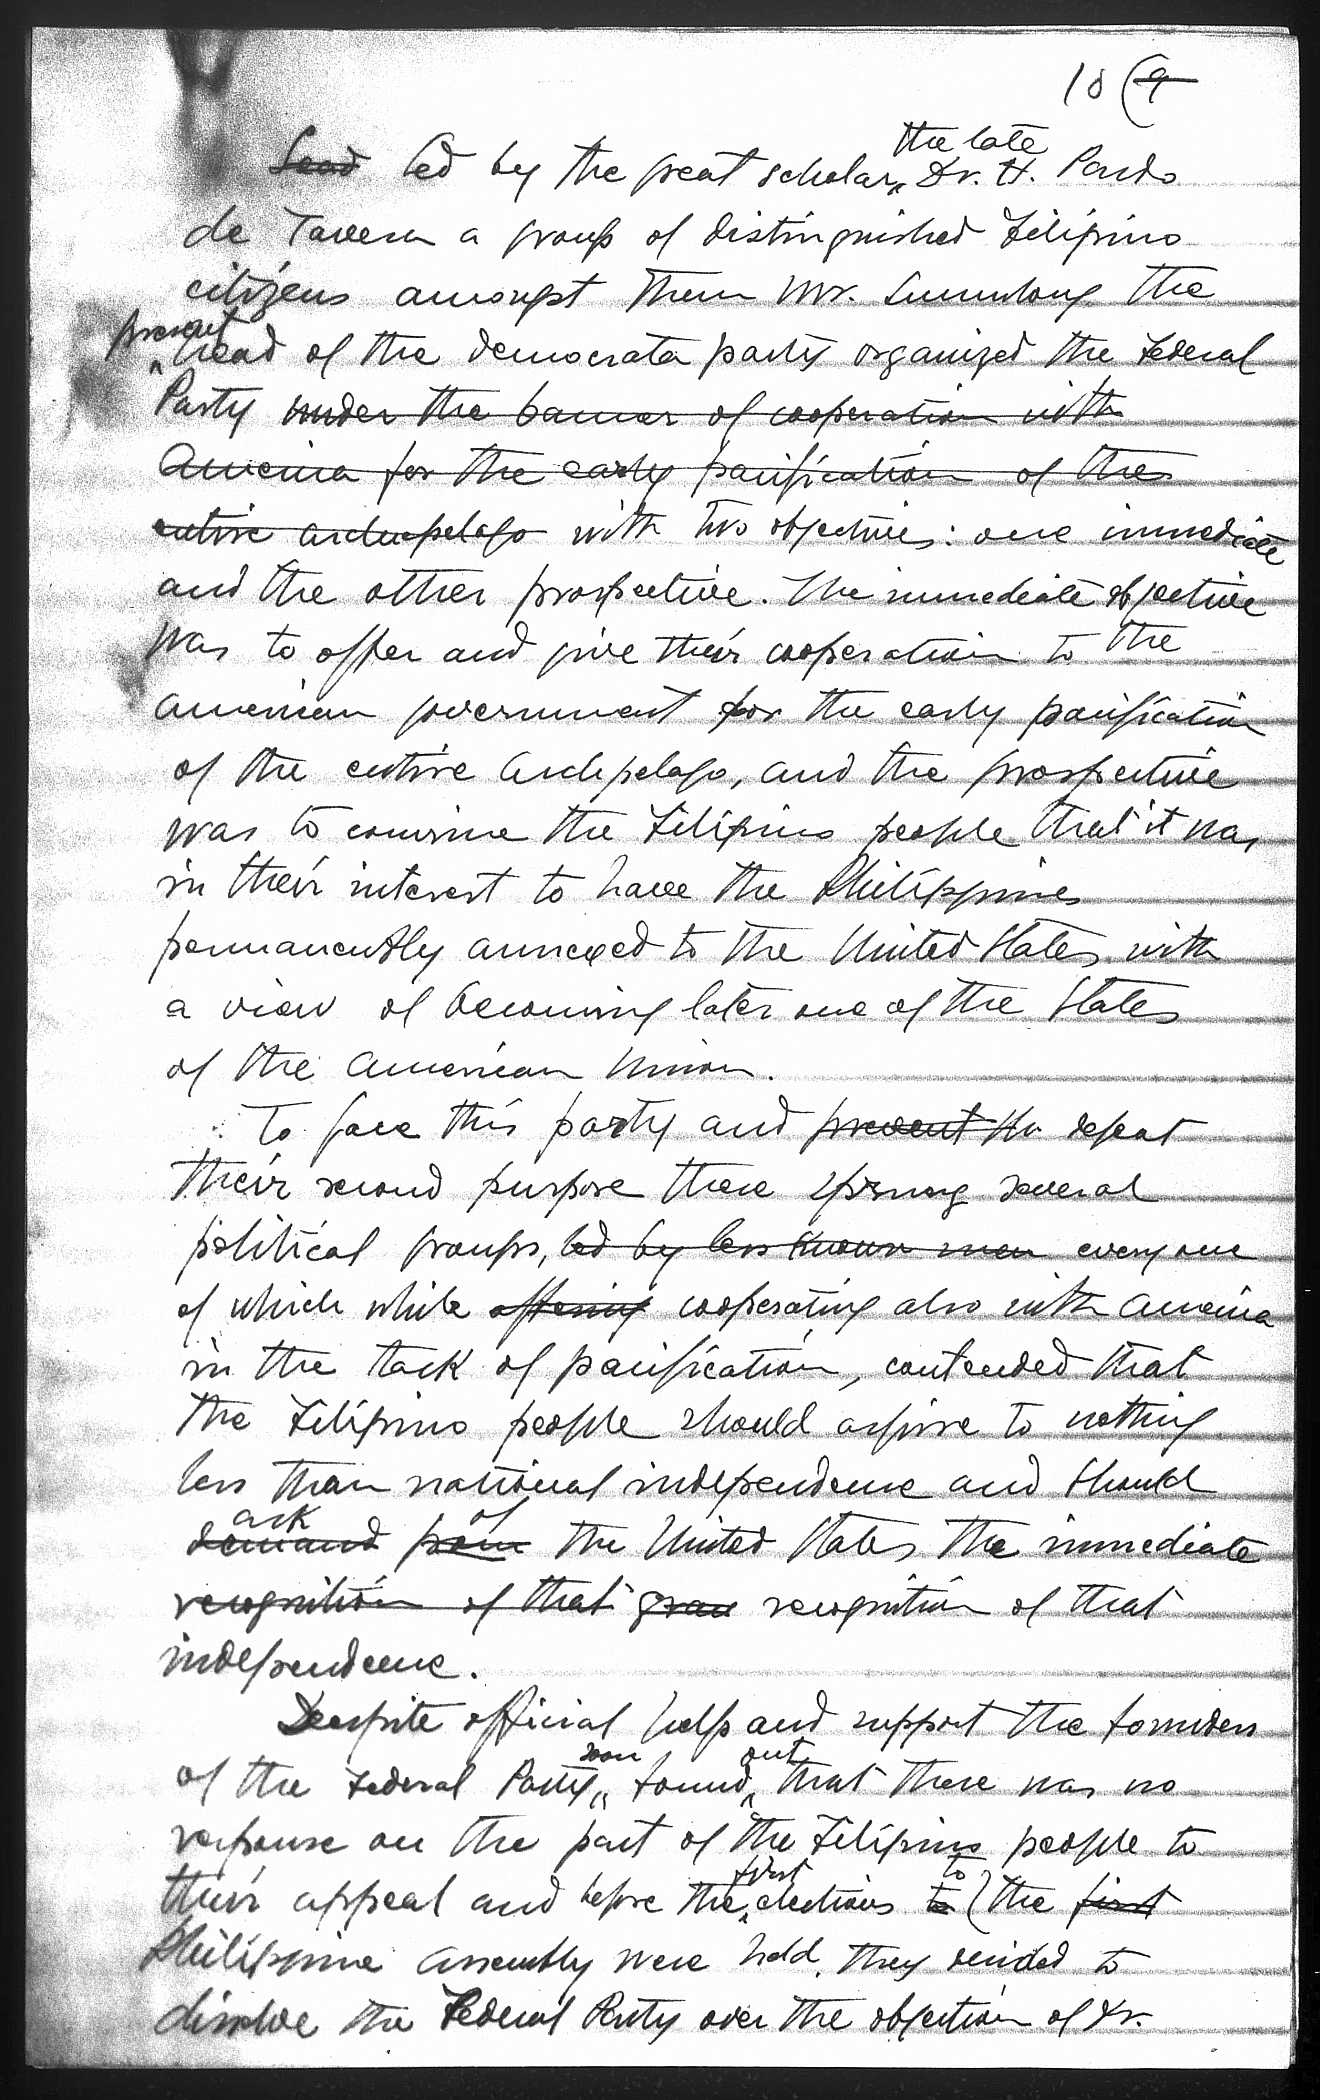 18 (9
Lead led by the great scholar, the late Dr. H. Pardo
de Tavera a group of distinguished Filipino
citizens amongst them Mr. Sumulong the
present head of the democrata party organized the Federal
Party under the banner of cooperation with
America for the early pacification of the
entire archipelago with two objectives: one immediate
and the other prospective. The immediate objective
was to offer and give their cooperation to the
American government for the early pacification
of the entire archipelago, and the prospective
was to convince the Filipino people that it was
in their interest to have the Philippines
permanently annexed to the United States with
a view of becoming later one of the States
of the American Union.
To face this party and prevent the defeat
their second purpose there sprung several
political groups, led by less known men every one
of which while offering cooperating also with America
in the task of pacification, contended that
the Filipino people should aspire to nothing
less than national independence and should
demand ask from of the United States the immediate
recognition of that gran recognition of that
independence.
Despite official help and support the founders
of the Federal Party soon found out that there was no
response on the part of the Filipino people to
their appeal and before the first elections to to the first
Philippine Assembly were held, they decided to
dissolve the Federal Party over the objection of Dr.